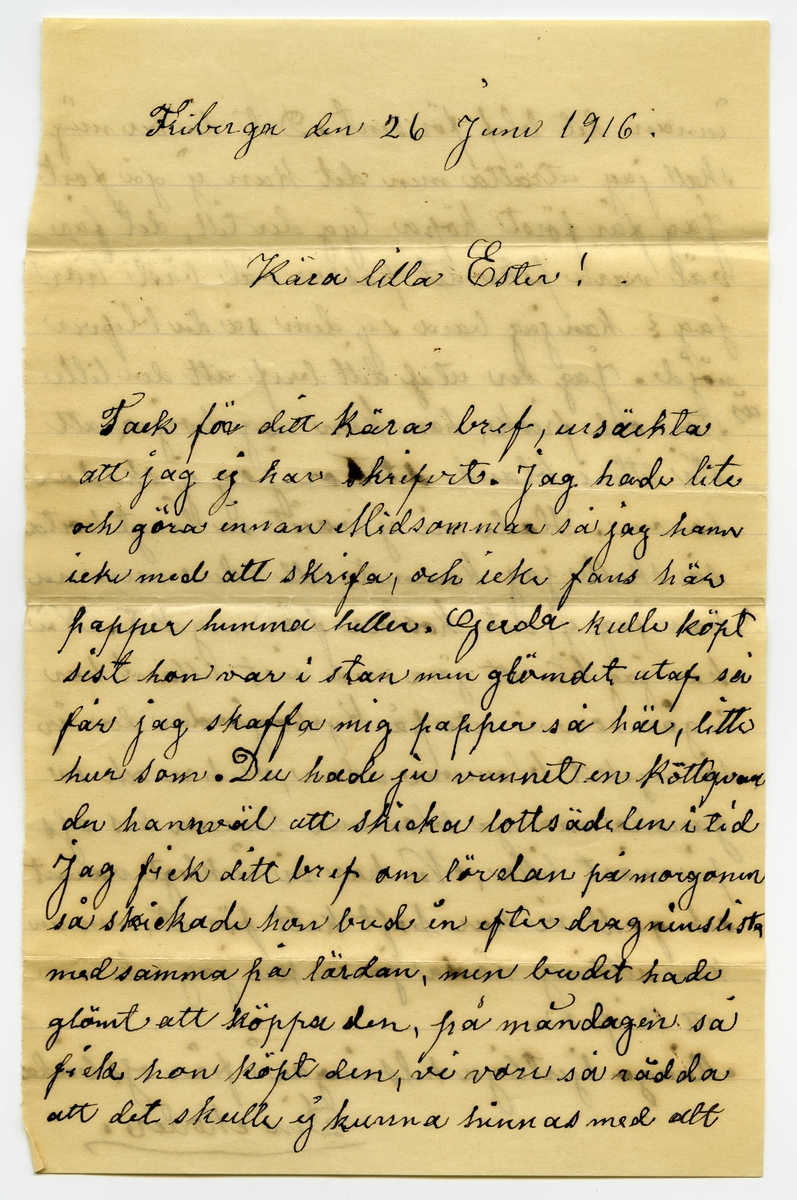 Friberga den 26 Juni 1916.
Kära lilla Ester!
Tack för ditt kära bref, ursäckta
att jag ej har skrifvit. Jag hade lite
och göra innan Midsommar så jag hann
icke med att skrifa, och icke fans här
papper hemma heller. Gerda kulle köpt
sist hon var i stan men glömdet utaf så
får jag skaffa mig papper så här, litte
hur som. Du hade ju vunnet en Köttqvarn
du hann väl att skicka lottsädelen i tid
Jag fick ditt bref om lördan på morgonen
så skickade hon bud in efter dragninslista
med samma på lördan, men budet hade
glömt att köppa den, på måndagen så
fick hon köpt den, vi voru så rädda
att det skulle ej kunna hinnas med att